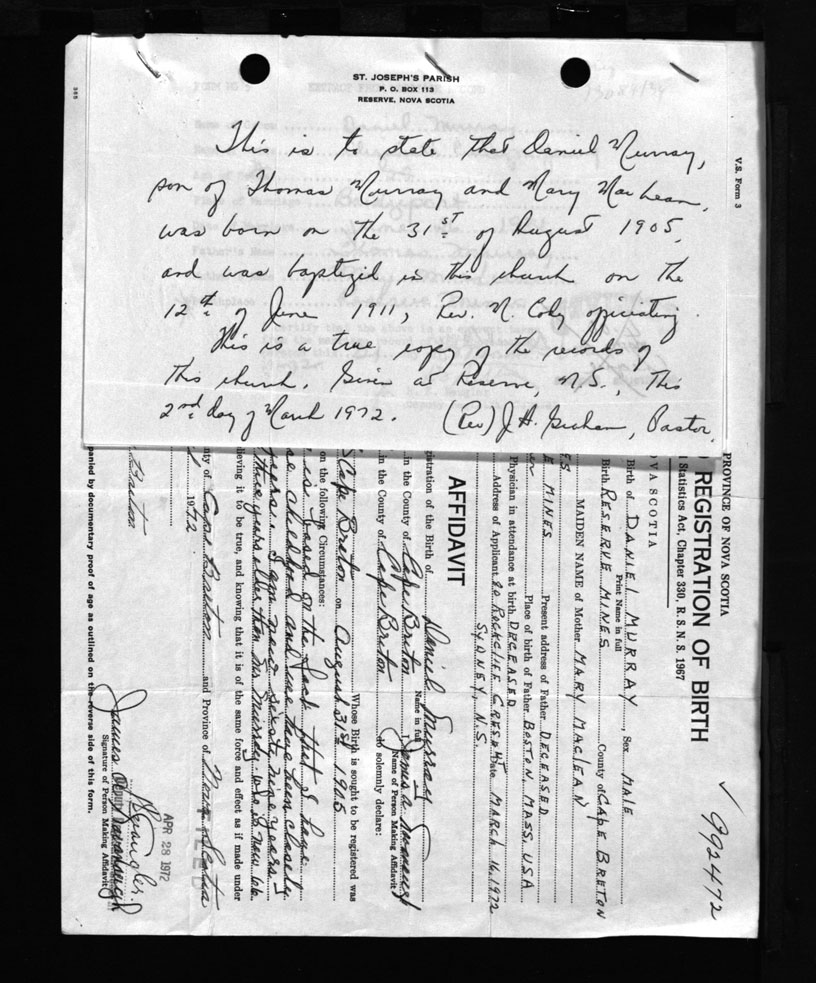 ST. JOSEPH'S PARISH
P. O. BOX 113
RESERVE, NOVA SCOTIA
This is to state that Daniel Murray,
son of Thomas Murray and Mary MacLean,
was born on the 31st of August 1905,
and was baptized in this church on the
12th of June 1911, Rev. M. Coady officiating.
This is a true copy of the records of
this church. Given at Reserve, N.S., this
2nd day of March 1972. (Rev) J. H. Graham, Pastor.
V.S. Form 3
PROVINCE OF NOVA SCOTIA
REGISTRATION OF BIRTH
Statistics Act, Chapter 330, R. S. N. S. 1967
992472
OVA SCOTIA
Birth of DANIEL MURRAY, Sex MALE
Print Name in full
Birth RESERVE MINES County of CAPE BRETON
MAIDEN NAME of Mother MARY MACLEAN
E MINES Present address of Father DECEASED
Place of birth of Father BOSTON, MASS, USA
Physician in attendance at birth DECEASED
Address of Applicant 20 ROCKCLIFF CRESENT Date MARCH 16, 1972
SYDNEY, N.S.
AFFIDAVIT
istration of the Birth of Daniel Murray
Name in full
in the County of Cape Breton I, James
Name of Person Making Affidavit
in the County of Cape Breton do solemnly declare:
Whose Birth is sought to be registered was
Cape Breton on August 31st 1905
on the following Circumstances:
is based on the fact that I have
childhood and we have been closely
years. I am now sixty nine years
three years older than Mr Murray who is now 66
lieving it to be true, and knowing that it is of the same force and effect as if made under
nty of Cape Breton and Province of Nova Scotia
1972
APR 28 1972
James
Signature of Person Making Affidavit
panied by documentary proof of age as outlined on the reverse side of this form.